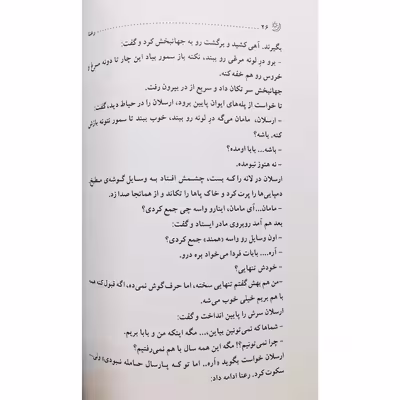 ۲۶ رعنا
بگیرند. آهی کشید و برگشت رو به جهانبخش کرد و گفت:
- برو در لونه مرغی رو ببند، نکنه باز سمور بیاد این چار تا دونه مرغ و
خروس رو هم خفه کنه.
جهانبخش سر تکان داد و سریع از در بیرون رفت.
تا خواست از پله‌های ایوان پایین برود، ارسلان را در حیاط دید، گفت:
- ارسلان، مامان می‌گه در لونه رو ببند، خوب ببند تا سمور نتونه بازش
کنه. باشه؟
- باشه... بابا اومده؟
- نه هنوز نیومده.
ارسلان در لانه را که بست، چشمش افتاد به وسایل گوشه‌ی مطبخ.
دمپایی‌ها را پرت کرد و خاک پاها را تکاند و از همانجا صدا زد.
- مامان... آی مامان، اینارو واسه چی جمع کردی؟
بعد هم آمد روبروی مادر ایستاد و گفت:
- اون وسایل رو واسه «همند» جمع کردی؟
- آره... بابات فردا می‌خواد بره درو.
- خودش تنهایی؟
- من هم بهش گفتم تنهایی سخته، اما حرف گوش نمی‌ده، اگه قبول کنه همه
با هم بریم خیلی خوب می‌شه.
ارسلان سرش را پایین انداخت و گفت:
- شماها که نمی‌تونین بیاین... مگه اینکه من و بابا بریم.
- چرا نمی‌تونیم؟! مگه این همه سال با هم نمی‌رفتیم؟
ارسلان خواست بگوید «آره.. اما تو که پارسال حامله نبودی» ولی
سکوت کرد. رعنا ادامه داد: